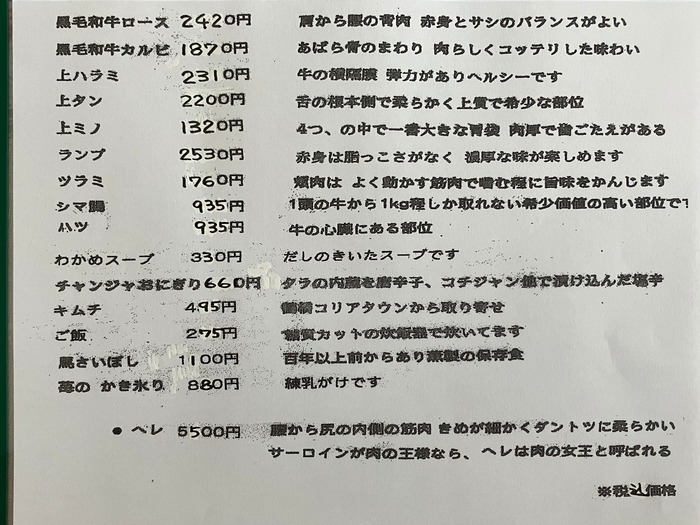 黒毛和牛ロース 2420円 肩から腰の背肉 赤身とサシのバランスがよい
黒毛和牛カルビ 1870円 あばら骨のまわり 肉らしくコッテリした味わい
上ハラミ 2310円 牛の横隔膜 弾力がありヘルシーです
上タン 2200円 舌の根本側で柔らかく上質で希少な部位
上ミノ 1320円 4つ、の中で一番大きな胃袋 肉厚で歯ごたえがある
ランプ 2530円 赤身は脂っこさがなく 濃厚な味が楽しめます
ツラミ 1760円 頬肉は よく動かす筋肉で噛む程に旨味をかんじます
シマ腸 935円 1頭の牛から1kg程しか取れない希少価値の高い部位で
ハツ 935円 牛の心臓にある部位
わかめスープ 330円 だしのきいたスープです
チャンジャおにぎり660円 タラの内臓を唐辛子、コチジャン他で漬け込んだ塩辛
キムチ 495円 鶴橋コリアタウンから取り寄せ
ご飯 275円 糖質カットの炊飯器で炊いてます
馬さいぼし 1100円 百年以上前からあり燻製の保存食
苺の かき氷り 880円 練乳がけです
● ヘレ 5500円 腰から尻の内側の筋肉 きめが細かくダントツに柔らかい
サーロインが肉の王様なら、ヘレは肉の女王と呼ばれる
※税込価格